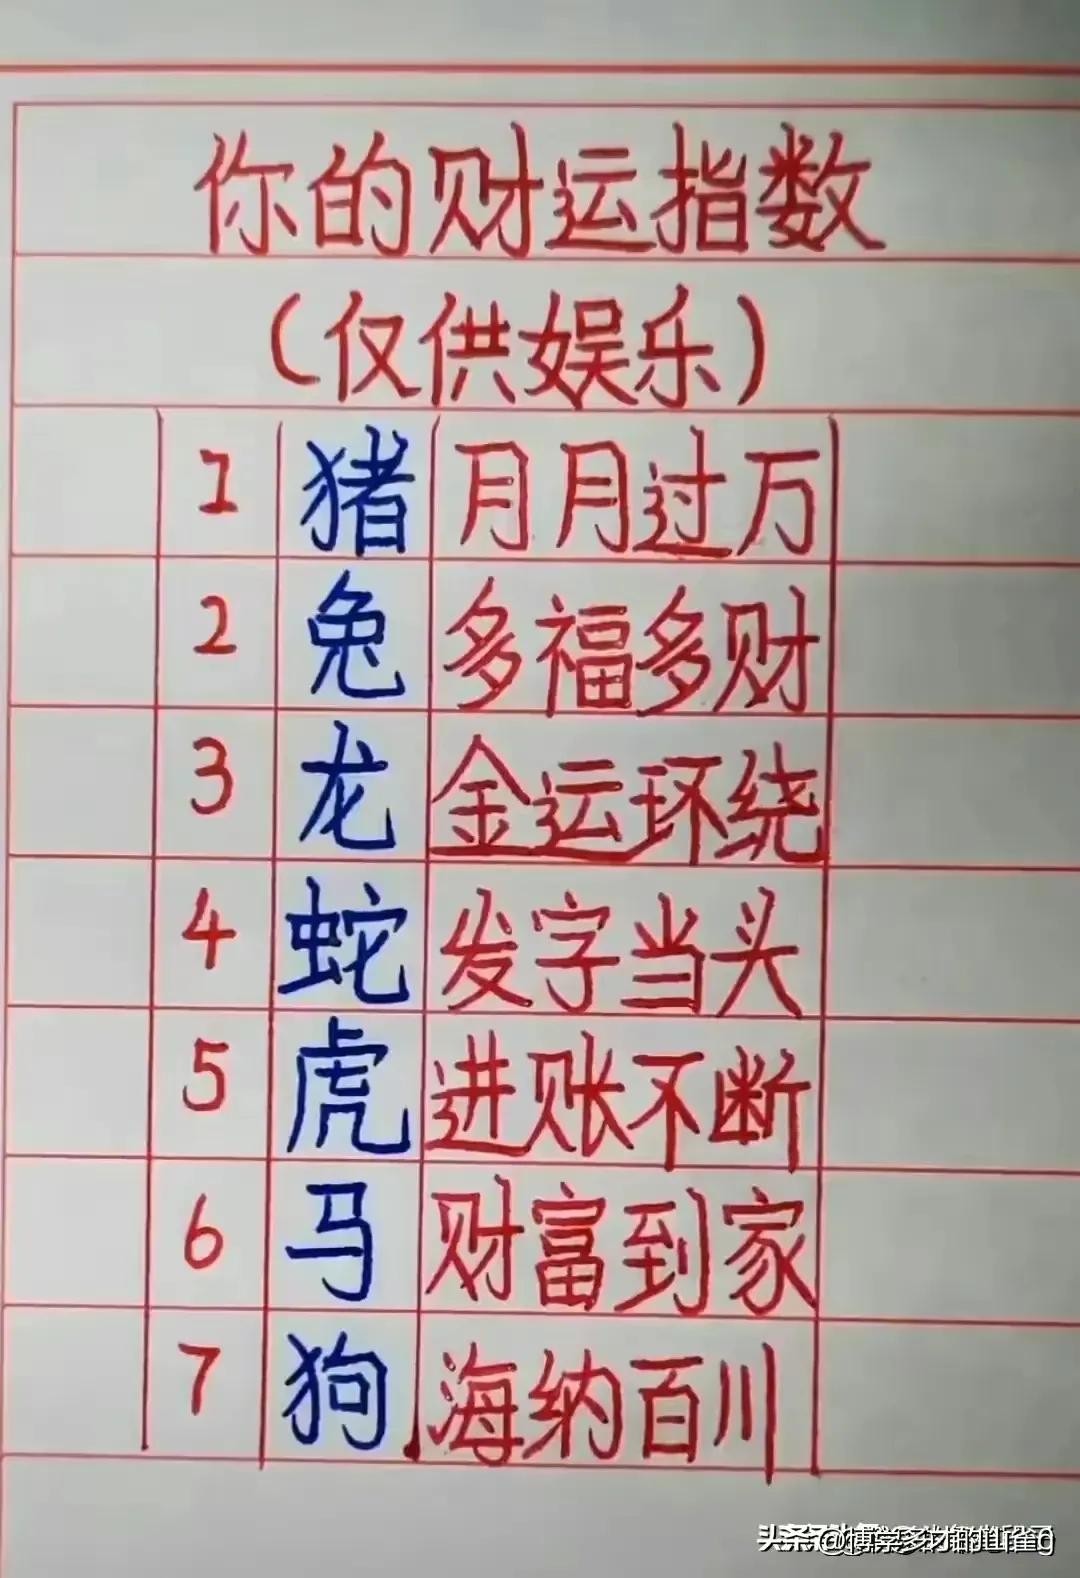 你的财运指数
(仅供娱乐)
1 猪 月月过万
2 兔 多福多财
3 龙 金运环绕
4 蛇 发字当头
5 虎 进账不断
6 马 财富到家
7 狗 海纳百川
头条